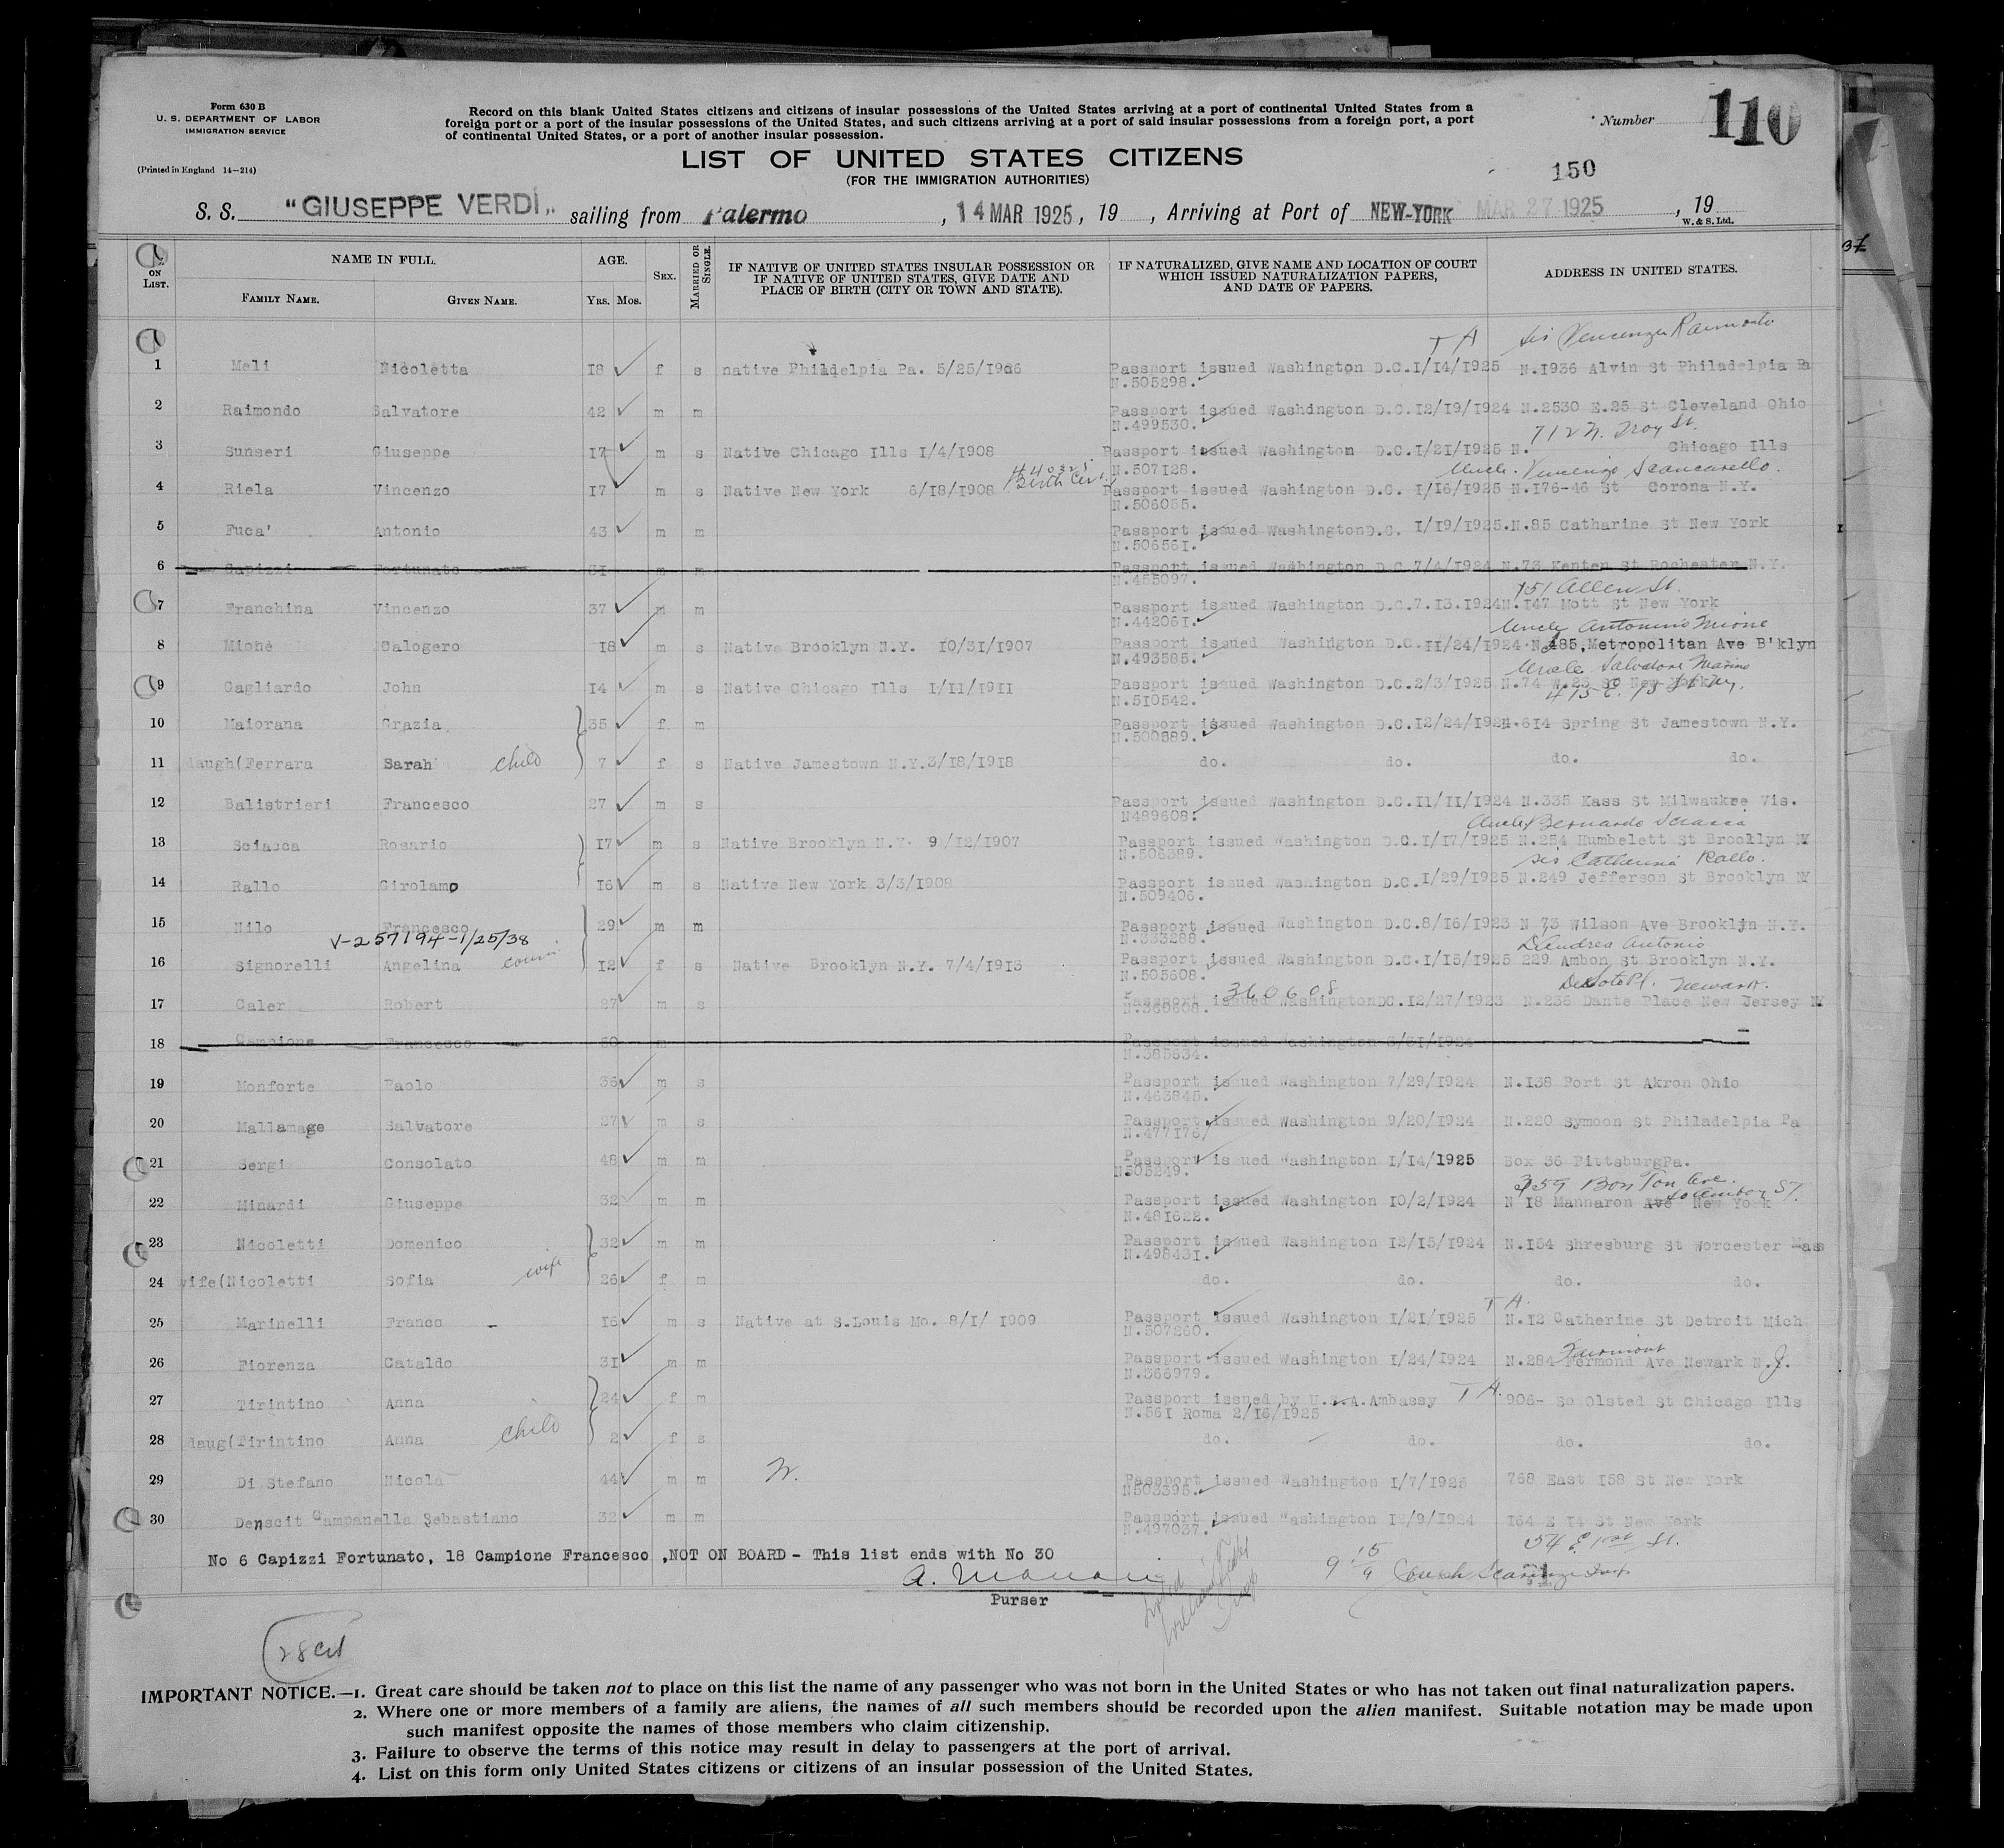 Form 630 B
U. S. DEPARTMENT OF LABOR
IMMIGRATION SERVICE
(Printed in England 14—214)
Record on this blank United States citizens and citizens of insular possessions of the United States arriving at a port of continental United States from a
foreign port or a port of the insular possessions of the United States, and such citizens arriving at a port of said insular possessions from a foreign port, a port
of continental United States, or a port of another insular possession.
Number 110
LIST OF UNITED STATES CITIZENS
(FOR THE IMMIGRATION AUTHORITIES)
150
S. S. "GIUSEPPE VERDI" sailing from Palermo, 14 MAR 1925, 19 , Arriving at Port of NEW-YORK MAR 27 1925, 19
W. & S. Ltd.
ON LIST.
NAME IN FULL.
FAMILY NAME. GIVEN NAME.
AGE.
YRS. MOS.
SEX.
MARRIED OR SINGLE.
IF NATIVE OF UNITED STATES INSULAR POSSESSION OR
IF NATIVE OF UNITED STATES, GIVE DATE AND
PLACE OF BIRTH (CITY OR TOWN AND STATE).
IF NATURALIZED, GIVE NAME AND LOCATION OF COURT
WHICH ISSUED NATURALIZATION PAPERS,
AND DATE OF PAPERS.
ADDRESS IN UNITED STATES.
T A sis Vencenza Raimonto
1 Meli Nicoletta 18 f s native Philadelpia Pa. 5/25/1906 Passport issued Washington D.C.1/14/1925 N.1936 Alvin St Philadelpia Pa
N.505298.
2 Raimondo Salvatore 42 m m Passport issued Washington D.C.12/19/1924 N.2530 E.25 St Cleveland Ohio
N.499530. 712 N. Troy St.
3 Sunseri Giuseppe 17 m s Native Chicago Ills 1/4/1908 Passport issued Washington D.C.1/21/1925 N. Chicago Ills
N.507128. Uncle. Vincenzo Scancarello.
Birth Cer
4 Riela Vincenzo 17 m s Native New York 6/18/1908 Passport issued Washington D.C. 1/16/1925 N.176-46 St Corona N.Y.
N.506055.
5 Fuca' Antonio 43 m m Passport issued Washington D.C. 1/19/1925.N.85 Catharine St New York
N.506561.
6 Capizzi Fortunato 31 m m Passport issued Washington D.C 7/4/1924 N.73 Kenten St Rochester N.Y.
N.455097.
151 Allen St.
7 Franchina Vincenzo 37 m m Passport issued Washington D.C.7.13.1924 N.147 Mott St New York
N.442061. Uncle Antonino Mione
8 Mione Calogero 18 m s Native Brooklyn N.Y. 10/31/1907 Passport issued Washington D.C.11/24/1924 N.485,Metropolitan Ave B'klyn
N.493585. Uncle Salvatore Marino
9 Gagliardo John 14 m s Native Chicago Ills 1/11/1911 Passport issued Washington D.C.2/3/1925 N.74 W.23 St New York
N.510542. 415 E. 73 St Ny.
10 Maiorana Grazia 35 f m Passport issued Washington D.C.12/24/1924.614 Spring St Jamestown N.Y.
N.500889.
11 daugh(Ferrara Sarah child 7 f s Native Jamestown N.Y.3/18/1918 do. do. do. do.
12 Balistrieri Francesco 27 m s Passport issued Washington D.C.11/11/1924 N.335 Kass St Milwaukee Vis.
N489608. Uncle Bernardo Sciasca
13 Sciasca Rosario 17 m s Native Brooklyn N.Y. 9/12/1907 Passport issued Washington D.C.1/17/1925 N.254 Humbelett St Brooklyn NY
N.506389. sis Catherina Rallo.
14 Rallo Girolamo 16 m s Native New York 3/3/1908 Passport issued Washington D.C.1/29/1925 N.249 Jefferson St Brooklyn NY
N.509406.
15 Nilo Francesco 29 m m Passport issued Washington D.C.8/16/1923 N 73 Wilson Ave Brooklyn N.Y.
V-257194-1/25/38 N.333288. D'Andrea Antonio
16 Signorelli Angelina cousin 12 f s Native Brooklyn N.Y. 7/4/1913 Passport issued Washington D.C.1/15/1925 229 Ambon St Brooklyn N.Y.
N.505608. 360608 DeSoto Pl. Newark.
17 Caler Robert 27 m s Passport issued Washington DC.12/27/1923 N.236 Dante Place New Jersey NY
N.360608.
18 Campione Francesco 50 m Passport issued Washington 3/31/1924
N.385834.
19 Monforte Paolo 36 m s Passport issued Washington 7/29/1924 N.138 Port St Akron Ohio
N.463845.
20 Mallamage Salvatore 27 m s Passport issued Washington 9/20/1924 N.220 Symoon St Philadelpia Pa
N.477176
21 Sergi Consolato 48 m m Passport issued Washington 1/14/1925 Box 36 PittsburgPa.
N.505249. 359 Bon Ton Ave.
22 Minardi Giuseppe 32 m m Passport issued Washington 10/2/1924 N 18 Mannaron Ave New York
N.481622.
23 Nicoletti Domenico 32 m m Passport issued Washington 12/15/1924 N.154 Shresburg St Worcester Mass
N.498431.
24 wife(Nicoletti Sofia wife 26 f m do. do. do. do.
T A.
25 Marinelli Franco 16 m s Native at S.Louis Mo. 8/1/ 1909 Passport issued Washington 1/21/1925 N.12 Catherine St Detroit Mich
N.507260. Fairmont
26 Fiorenza Cataldo 31 m m Passport issued Washington 1/24/1924 N.284 Fermond Ave Newark N.J.
N.366979.
27 Tirintino Anna 24 f m Passport issued by U.S.A.Ambassy T A. 906- So Olsted St Chicago Ills
N.561 Roma 2/16/1925
28 daug(Tirintino Anna child 2 f s do. do. do. do.
29 Di Stefano Nicola 44 m m N. Passport issued Washington 1/7/1925 768 East 158 St New York
N503395.
30 Denscit Campanella Sebastiano 32 m m Passport issued Washington 12/9/1924 164 E 14 St New York
N.497037. 54 E 1st St.
No 6 Capizzi Fortunato, 18 Campione Francesco ,NOT ON BOARD - This list ends with No 30
Purser
28 Cit
IMPORTANT NOTICE.—1. Great care should be taken not to place on this list the name of any passenger who was not born in the United States or who has not taken out final naturalization papers.
2. Where one or more members of a family are aliens, the names of all such members should be recorded upon the alien manifest. Suitable notation may be made upon
such manifest opposite the names of those members who claim citizenship.
3. Failure to observe the terms of this notice may result in delay to passengers at the port of arrival.
4. List on this form only United States citizens or citizens of an insular possession of the United States.